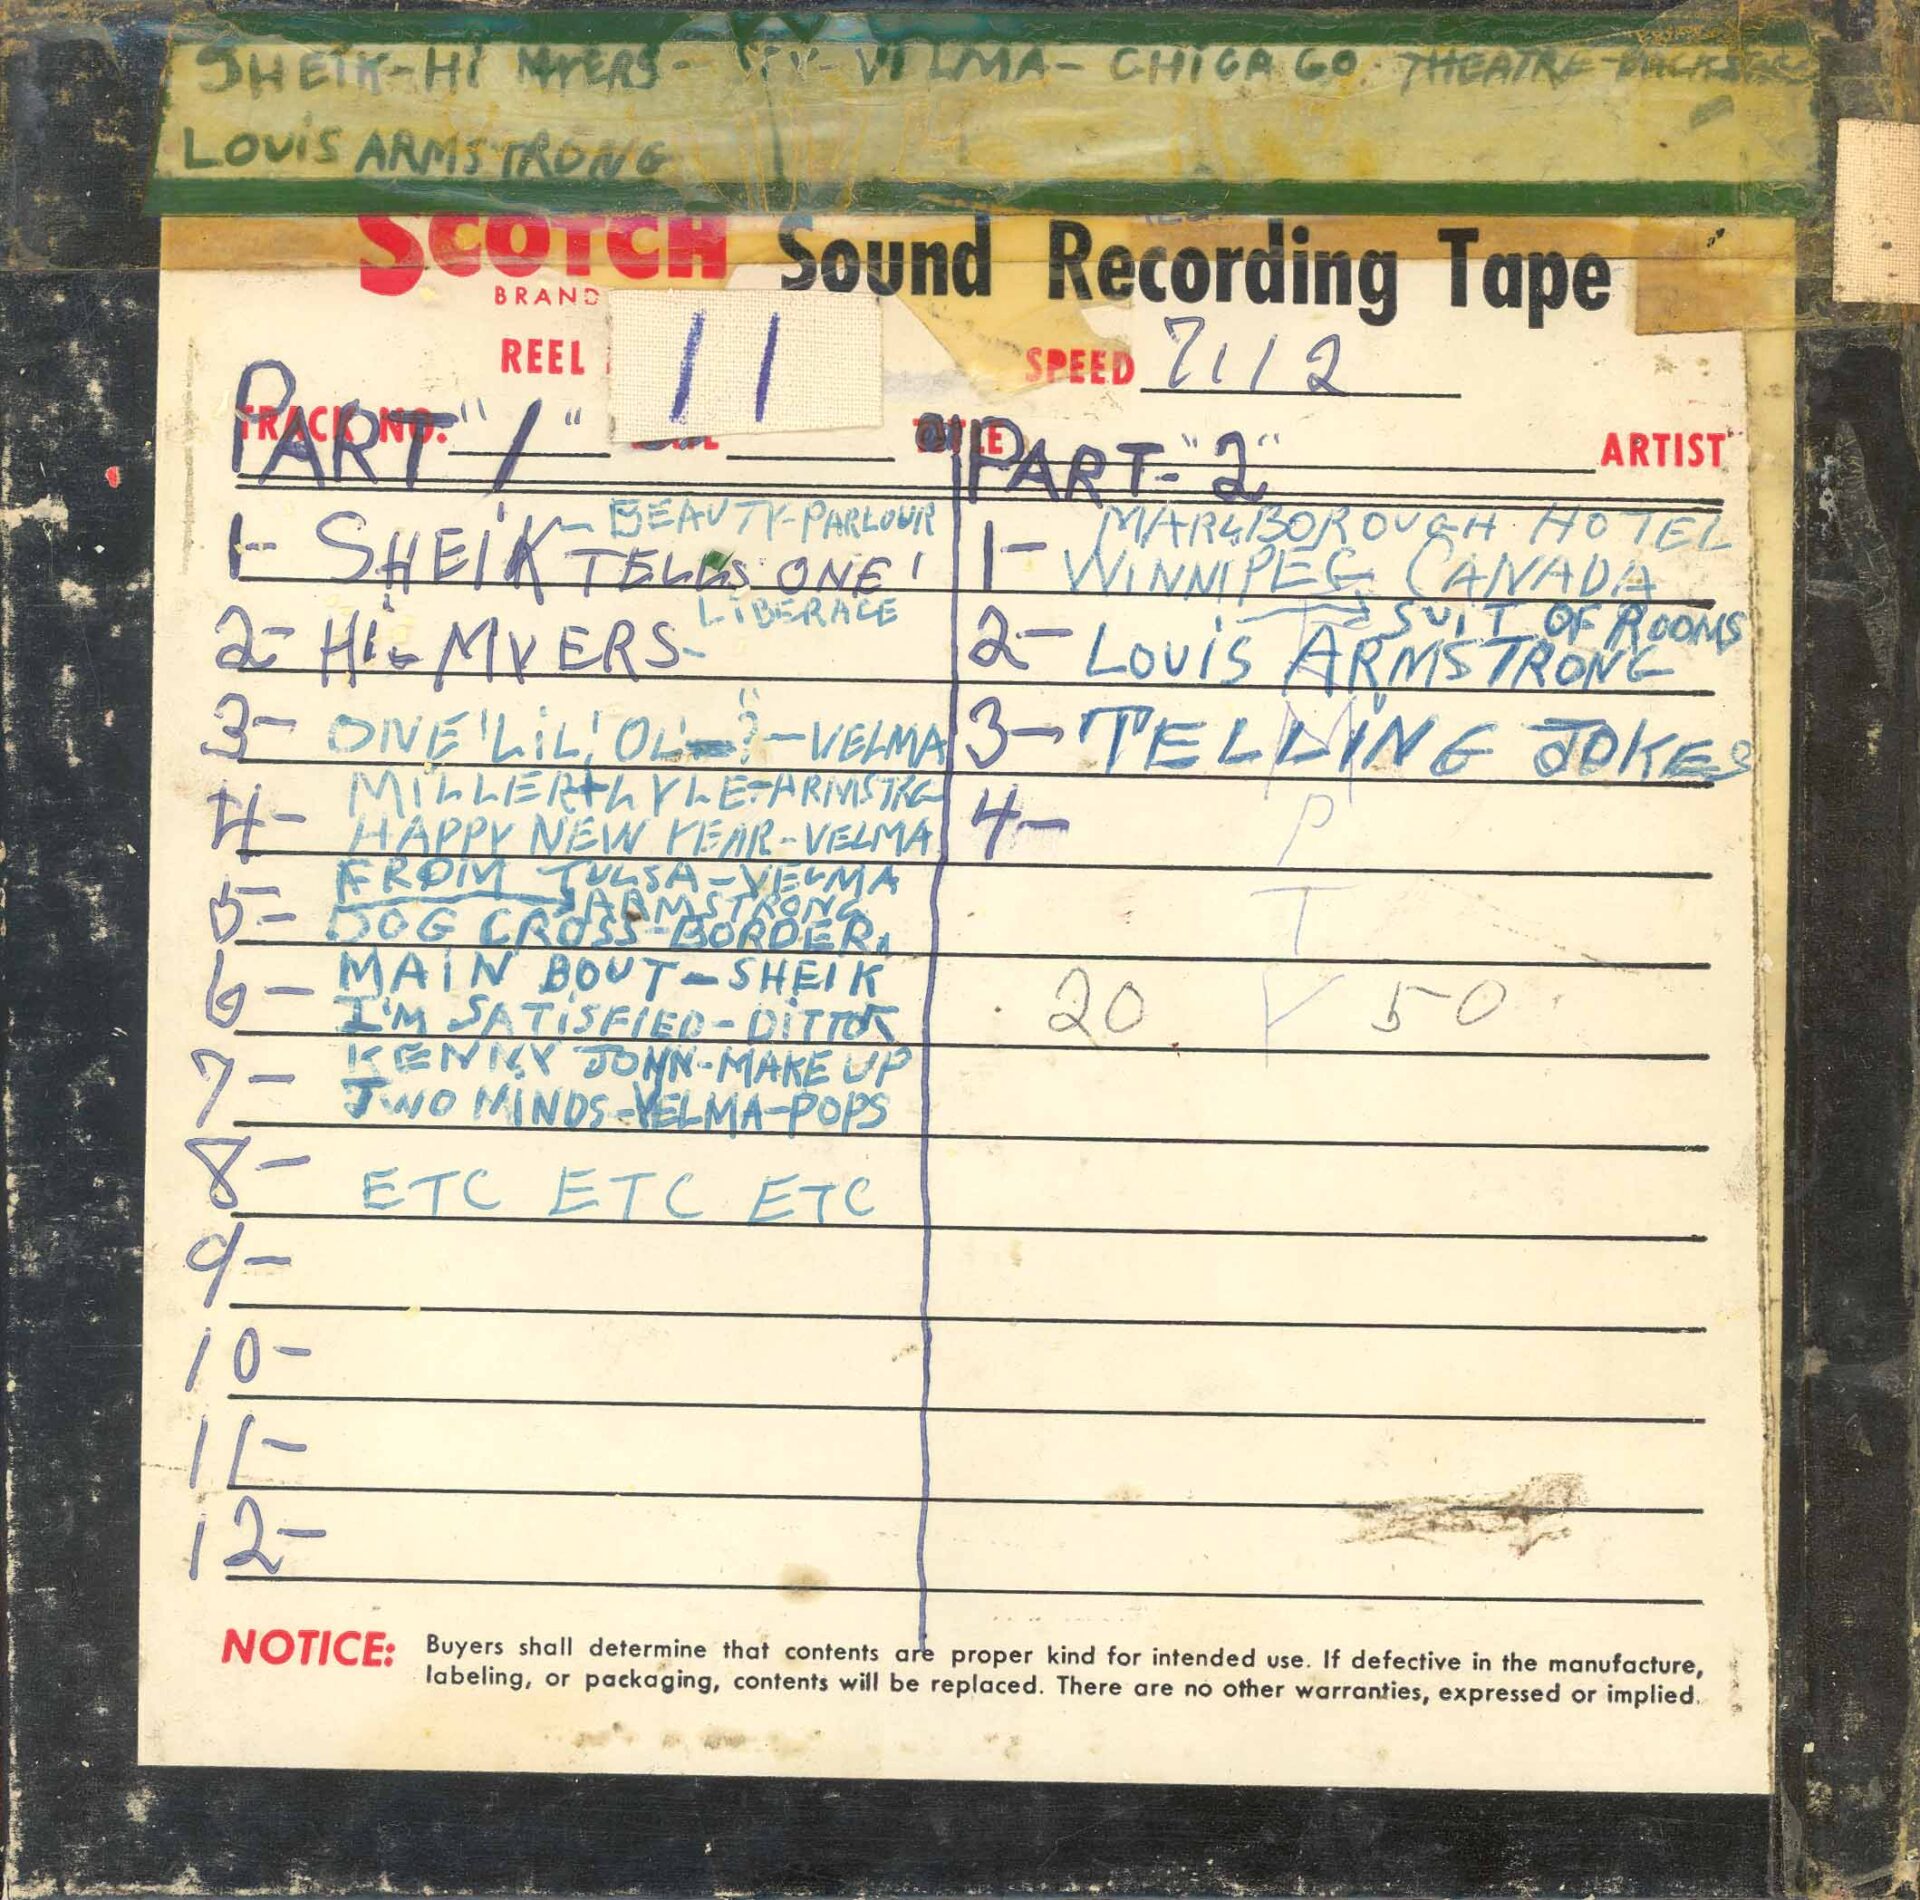 SHEIK-HI MYERS- VELMA- CHICAGO THEATRE-
LOUIS ARMSTRONG
SCOTCH Sound Recording Tape
BRAND
REEL 11 SPEED 7 1/2
TRACK NO. TITLE ARTIST
PART "1" PART-"2"
1- SHEIK- BEAUTY-PARLOUR
TELLS ONE!
2- Hi-MYERS- LIBERACE
3- ONE 'LiL' OL' ?-VELMA
4- MILLER+LYLE-ARMSTRG
HAPPY NEW YEAR-VELMA
5- FROM TULSA-VELMA
ARMSTRONG
DOG CROSS-BORDER
6- MAIN BOUT-SHEIK
I'M SATISFIED-DITTO
7- KENNY JOHN-MAKE UP
TWO MINDS-VELMA-POPS
8- ETC ETC ETC
9-
10-
11-
12-
1- MARLBOROUGH HOTEL
WINNIPEG CANADA
SUIT OF ROOMS
2- LOUIS ARMSTRONG
3- TELLING JOKES
4-
M
P
T
20 Y 50
NOTICE: Buyers shall determine that contents are proper kind for intended use. If defective in the manufacture,
labeling, or packaging, contents will be replaced. There are no other warranties, expressed or implied.